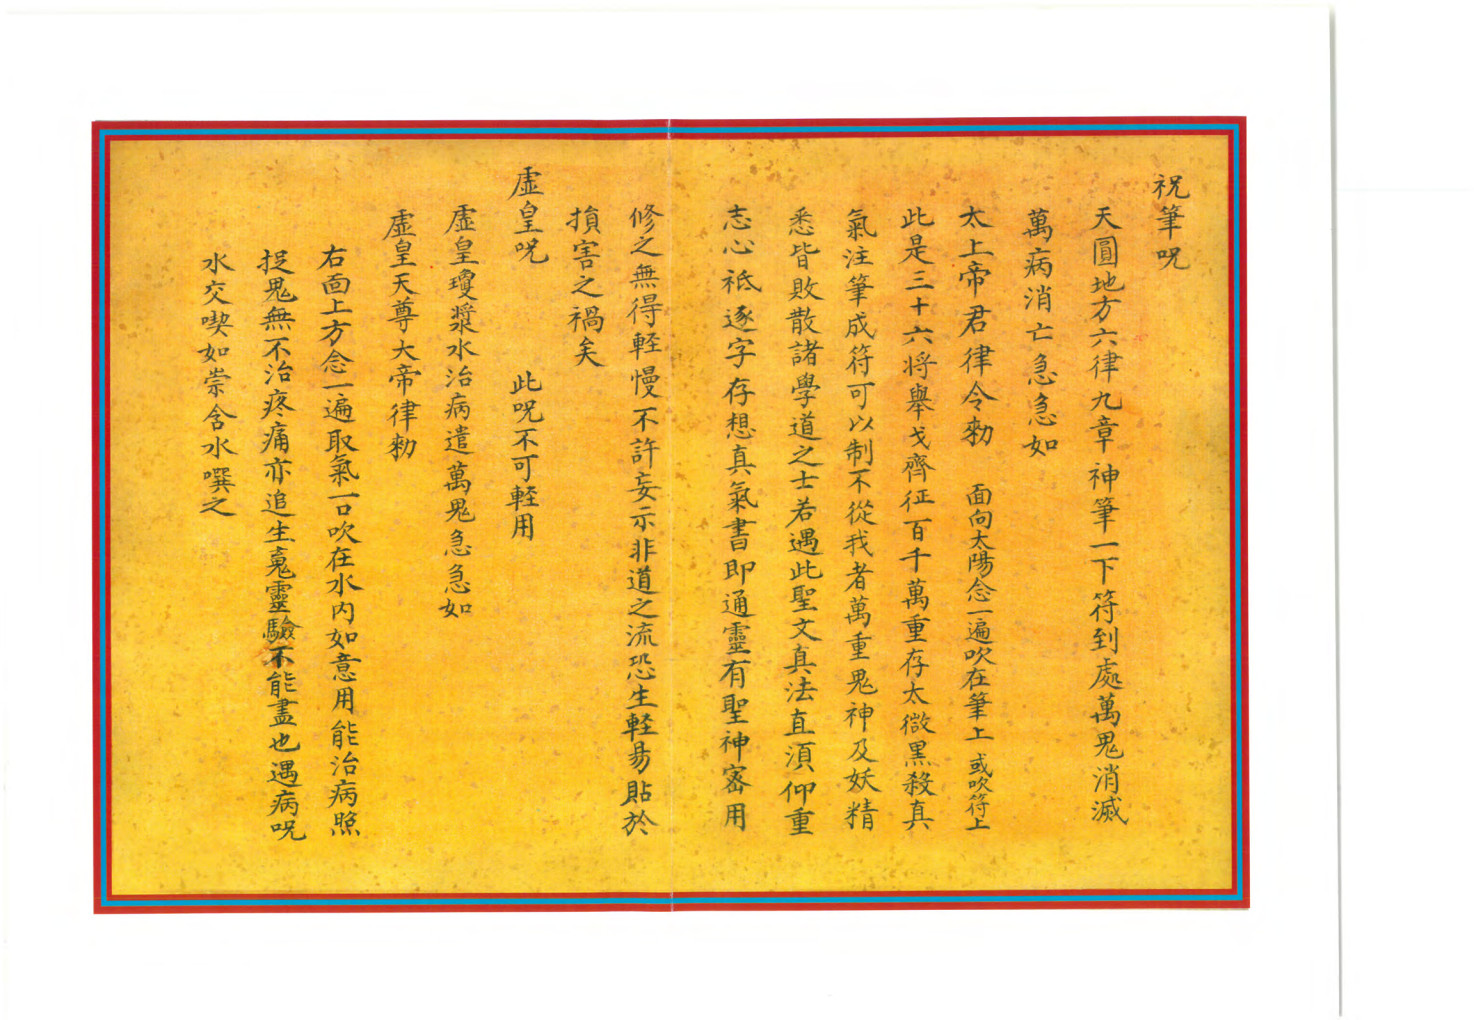 祝筆呪
天圓地方六律九章神筆一下符到處萬鬼消滅
萬病消亡急急如
太上帝君律令勑　面向太陽念一遍吹在筆上或吹符上
此是三十六将舉戈齊征百千萬重存太微黑殺真
氣注筆成符可以制不從我者萬重鬼神及妖精
悉皆敗散諸學道之士若遇此聖文真法直須仰重
志心祗逐字存想真氣書即通靈有聖神密用
修之無得輕慢不許妄示非道之流恐生輕易貽於
損害之禍矣
虛皇呪　此呪不可輕用
虛皇瓊漿水治病遣萬鬼急急如
虛皇天尊大帝律勑
右面上方念一遍取氣一口吹在水内如意用能治病照
捉鬼無不治疼痛亦追生䰟靈驗不能盡也遇病呪
水交喫如崇含水噀之